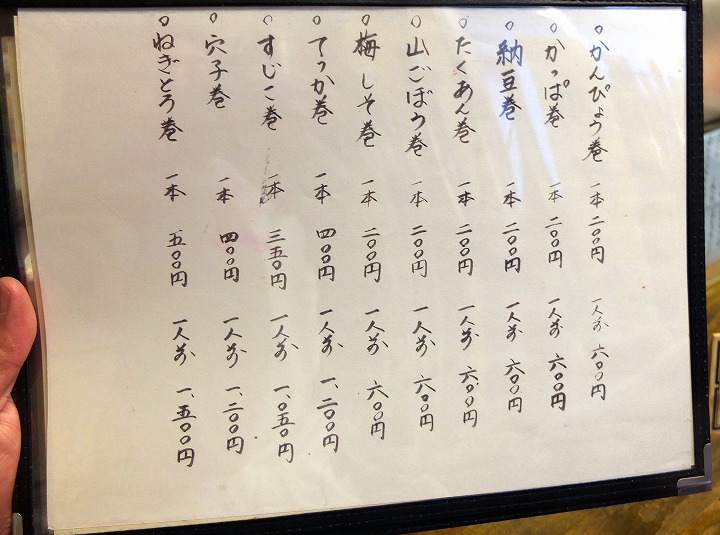 ○かんぴょう巻 一本 二〇〇円 一人前 六〇〇円
○かっぱ巻 一本 二〇〇円 一人前 六〇〇円
○納豆巻 一本 二〇〇円 一人前 六〇〇円
○たくあん巻 一本 二〇〇円 一人前 六〇〇円
○山ごぼう巻 一本 二〇〇円 一人前 六〇〇円
○梅しそ巻 一本 二〇〇円 一人前 六〇〇円
○てっか巻 一本 四〇〇円 一人前 一、二〇〇円
○すじこ巻 一本 三五〇円 一人前 一、〇五〇円
○穴子巻 一本 四〇〇円 一人前 一、二〇〇円
○ねぎとろ巻 一本 五〇〇円 一人前 一、五〇〇円